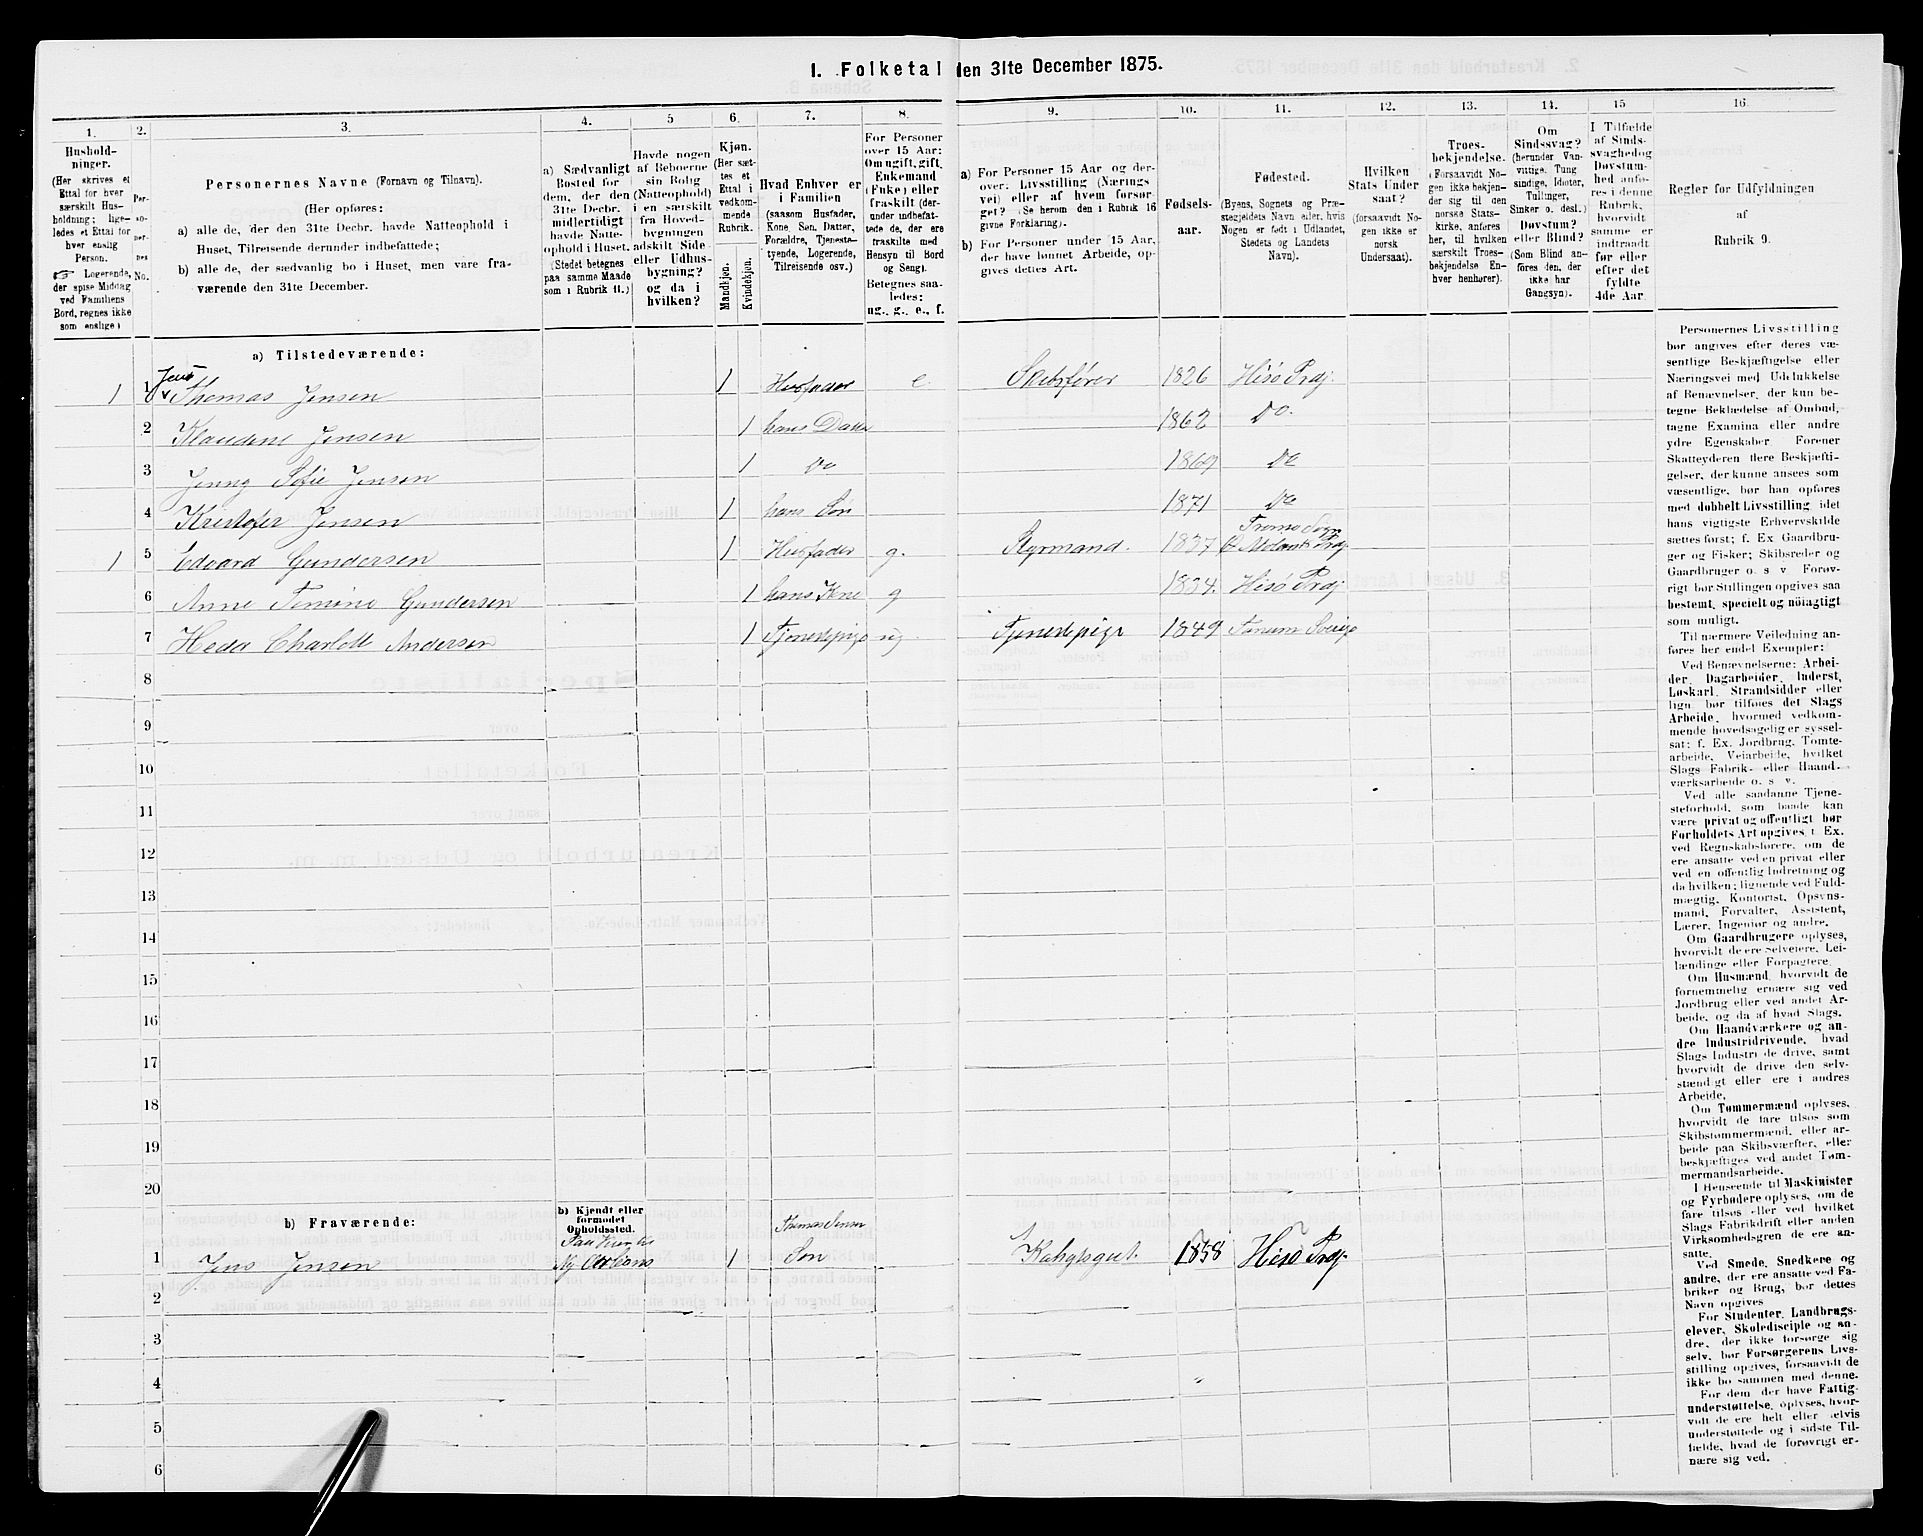 1. Folketal den 31te December 1875.
1.
Hushold-
ninger.
(Her skrives et
Ettal for hver
særskilt Hus-
holdning; lige-
ledes et Ettal for
hver enslig
Person.
☞ Logerende,
der spise Middag
ved Familiens
Bord, regnes ikke
som enslige)
2.
Per-
so-
ner-
nes
No.
3.
Personernes Navne (Fornavn og Tilnavn).
(Her opføres:
a) alle de, der den 31te Decbr. havde Natteophold i
Huset, Tilreisende derunder indbefattede;
b) alle de, der sædvanlig bo i Huset, men vare fra-
værende den 31te December.
4.
a) Sædvanligt
Bosted for
dem, der den
31te Decbr.
midlertidigt
havde Natte-
ophold i Huset.
(Stedet betegnes
paa samme Maade
som i Rubrik 11.)
5
Havde nogen
af Beboerne
sin Bolig
(Natteophold)
i en særskilt
fra Hoved-
bygningen
adskilt Side-
eller Udhus-
bygning?
og da i
hvilken?
6.
Kjøn.
(Her sæt-
tes et
Ettal i
vedkom-
mende
Rubrik.
Mandkjøn.
Kvindekjøn.
7.
Hvad Enhver er
i Familien
(saasom Husfader,
Kone, Søn, Datter,
Forældre, Tjeneste-
tyende, Logerende,
Tilreisende osv.)
8.
For Personer
over 15 Aar:
Om ugift, gift,
Enkemand
(Enke) eller
fraskilt (der-
under indbefat-
tede de, der ere
fraskilte med
Hensyn til Bord
og Seng).
Betegnes saa-
ledes:
ug., g., e., f.
9.
a) For Personer 15 Aar og der-
over: Livsstilling (Nærings-
vei) eller af hvem forsør-
get? (Se herom den i Rubrik 16
givne Forklaring).
b) For Personer under 15 Aar,
der have lønnet Arbeide, op-
gives dettes Art.
10.
Fødsels-
aar.
11.
Fødested.
(Byens, Sognets og Præ-
stegjeldets Navn eller, hvis
Nogen er født i Udlandet,
Stedets og Landets
Navn).
12.
Hvilken
Stats Under-
saat?
(forsaavidt No-
gen ikke er
norsk
Undersaat).
13.
Troes-
bekjendelse.
(Forsaavidt No-
gen ikke bekjen-
der sig til den
norske Stats-
kirke, anføres
her, til hvilken
særskilt Troes-
bekjendelse En-
hver henhører).
14.
Om
Sindssvag?
(herunder Van-
vittige, Tung-
sindige, Idioter,
Tullinger,
Sinker o. desl.)
Døvstum?
eller Blind?
(Som Blind an-
føres den, der
ikke har
Gangsyn).
15
I Tilfælde
af Sinds-
svaghed og
Døvstum-
hed anfø-
res i denne
Rubrik,
hvorvidt
samme er
indtraadt
før eller
efter det
fyldte
4de Aar.
16.
Regler for Udfyldningen
af
Rubrik 9.
a) Tilstedeværende:
Jens
1 1 Thomas Jensen 1 Husfader e Skibsfører 1826 Hisø Prgj.
2 Klaudene Jensen 1 hans Datter 1862 Do.
3 Jenny Sofie Jensen 1 Do 1869 Do
4 Kristofer Jensen 1 hans Søn 1871 Do
Tromø Sogn
1 5 Edvard Gundersen 1 Husfader g. Styrmand. 1837 Ø Molands Prgj
6 Anne Tomine Gundersen 1 hans Kone g 1834. Hisø Prgj
7 Heda Charlotte Andersen 1 Tjenestepige ug Tjenestepige 1849 Tanum Sverige
8
9
10
11
12
13
14
15
16
17
18
19
20
b) Fraværende:
b) Kjendt eller
formodet
Opholdssted.
Thomas Jensen
1 Jens Jensen Ny Orleans 1 Søn Kahytsgut. 1858 Hisø Prgj.
2
3
4
5
6
Personernes Livsstilling
bør angives efter deres væ-
sentlige Beskjæftigelse eller
Næringsvei med Udelukkelse
af Benævnelser, der kun be-
tegne Beklædelse af Ombud,
tagne Examina eller andre
ydre Egenskaber. Forener
Skatteyderen flere Beskjæfti-
gelser, der kunne ansees som
væsentlige, bør han opføres
med dobbelt Livsstilling, idet
hans vigtigste Erhvervskilde
sættes først; f. Ex Gaardbru-
ger og Fisker; Skibsreder og
Gaardbruger o. s v. Forøv-
rigt bør Stillingen opgives saa
bestemt, specielt og nøiagtigt
som muligt.
Til nærmere Veiledning an-
føres her endel Exempler:
Ved Benævnelserne: Arbei-
der, Dagarbeider, Inderst,
Løskarl, Strandsidder eller
lign. bør tilføies det Slags
Arbeide, hvormed vedkom-
mende hovedsagelig er syssel-
sat; f. Ex. Jordbrug, Tomte-
arbeide, Veiarbeide, hvilket
Slags Fabrik- eller Haand-
værksarbeide o. s v.
Ved alle saadanne Tjene-
steforhold, som baade kan
være privat og offentligt bør
Forholdets Art opgives, t. Ex.
ved Regnskabsførere, om de
ere ansatte ved en privat eller
ved en offentlig Indretning og
da hvilken; lignende ved Fuld-
mægtig, Kontorist, Opsyns-
mand, Forvalter, Assistent,
Lærer, Ingeniør og andre.
Om Gaardbrugere oplyses,
hvorvidt de ere Selveiere, Lei-
lændinge eller Forpagtere.
Om Husmænd, hvorvidt de
fornemmelig ernære sig ved
Jordbrug eller ved andet Ar-
beide, og da af hvad Slags.
Om Haandværkere og an-
dre Industridrivende, hvad
Slags Industri de drive, samt
hvorvidt de drive den selv-
stændigt eller ere i andres
Arbeide.
Om Tømmermænd oplyses,
hvorvidt de fare tilsøs som
Skibstømmermænd, eller ar-
beide paa Skibsværfter, eller
beskjæftiges ved andet Tøm-
mermandsarbeide.
I Henseende til Maskinister
og Fyrbødere oplyses, om de
fare tilsøs eller ved hvilket
Slags Fabrikdrift eller anden
Virksomhedsgren de ere an-
satte.
Ved Smede, Snedkere og
andre, der ere ansatte ved Fa-
briker og Brug, bør dettes
Navn opgives
For Studenter, Landbrugs-
elever, Skoledisciple og an-
dre, der ikke forsørge sig
selv, bør Forsørgerens Livs-
stilling opgives, forsaavidt de
ikke bo sammen med denne.
For dem, der have Fattig-
understøttelse, oplyses, hvor-
vidt de ere helt eller delvis
understøttede og i sidste Til-
fælde, hvad de forøvrigt er-
nære sig ved.